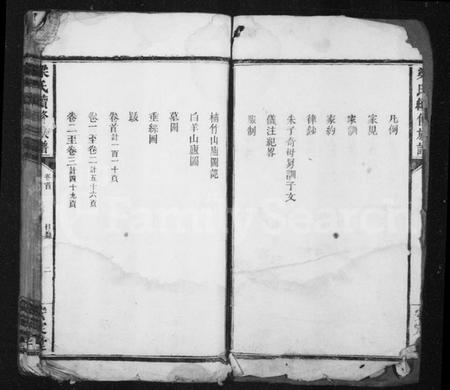 梁氏續修族譜
凡例
家規
家訓
家約
律鈔
朱子奇母舅訓子文
儀注紀畧
服制
楠竹山廟圖記
白羊山廟圖
墓圖
垂絲圖
跋
卷首計一百一十頁
卷一至卷二計五十六頁
卷二至卷三計四十九頁
梁氏續修族譜
卷首
目錄
一
FamilySearch